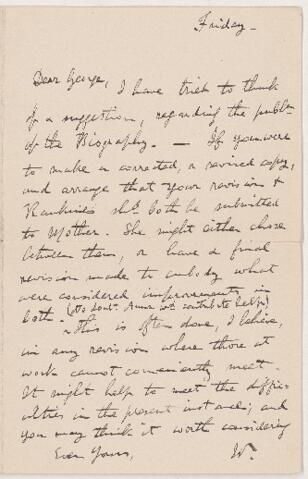 Friday –
Dear George,
I have tried to think
of a suggestion, regarding the publn
of the Biography. — If you were
to make a corrected, a revised copy,
and arrange that your revision &
shd. both be submitted
to Mother. She might either chose
between them, or have a final
revision made to embody what
were considered improvements in
both. (to Aunt Anna wd. contribute help)
This is often done, I believe,
in any revision where those at
work cannot conveniently meet.
It might help to meet the diffic-
ulties in the present instance; and
you may think it worth considering
Ever Yours,
W.